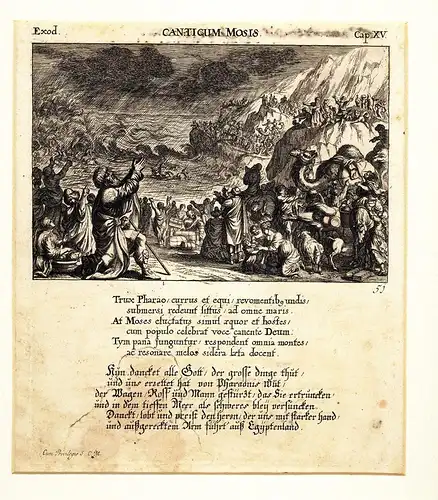 Exod. CANTICUM MOSIS. Cap. XV.
51
Trux Pharao / currus et equi / revomentibꝫ undis /
submersi redeunt littus / ad omne maris.
At Moses eluctatus simul æquor et hostes /
cum populo celebrat voce canente Deum.
Tympana funguntur / respondent omnia montes /
ac resonare melos sidera læta docent.
Nun dancket alle Gott / der grosse dinge thut /
und uns errettet hat von Pharaonis Wut /
der Wagen / Roß und Mann gestürtzt / das Sie ertruncken
und in dem tieffen Meer als schweres bley versuncken.
Danckt / lobt und preist den Herrn / der uns mit starcker hand /
und außgerecktem Arm führt auß Egÿptenland.
Cum Privilegio S. C. M.